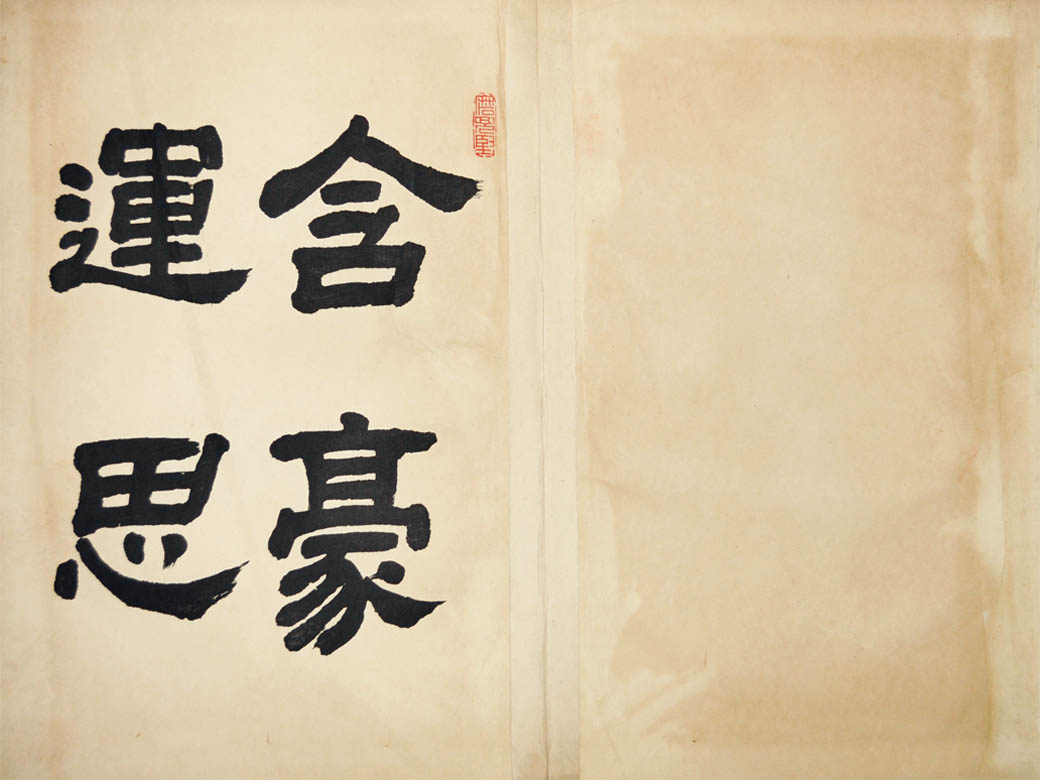 含豪
運思